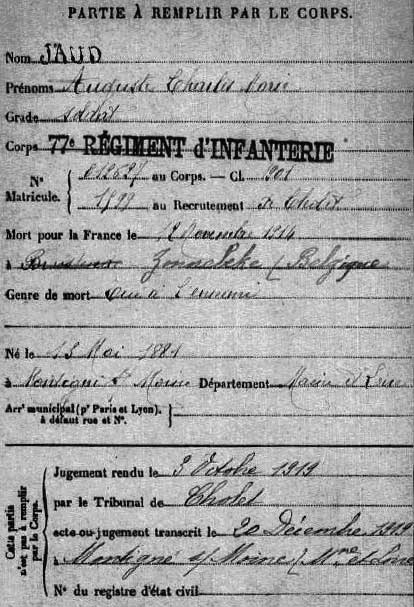 PARTIE À REMPLIR PAR LE CORPS.
Nom JAUD
Prénoms Auguste Charles Marie
Grade soldat
Corps 77e RÉGIMENT d'INFANTERIE
N° Matricule. { au Corps. — Cl. 1901
au Recrutement de Cholet
Mort pour la France le 12 Novembre 1914
à Zonnebeke / Belgique
Genre de mort Tué à l'ennemi
Né le 13 Mai 1881
à Montigné s/ Moine Département Maine et Loire
Arrt municipal (pr Paris et Lyon), à défaut rue et N°. }
Cette partie n'est pas à remplir par le Corps. {
Jugement rendu le 3 Octobre 1919
par le Tribunal de Cholet
acte ou jugement transcrit le 20 Décembre 1919
à Montigné s/ Moine / Mne et Loire
N° du registre d'état civil